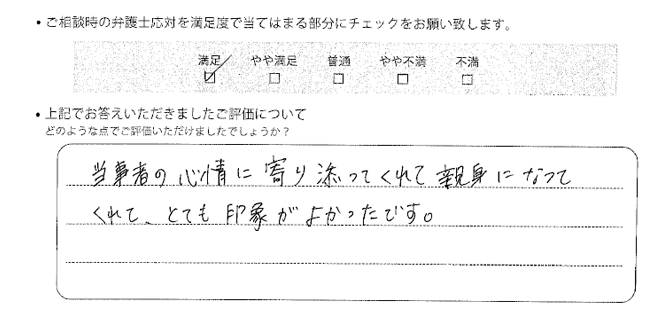 ・ご相談時の弁護士応対を満足度で当てはまる部分にチェックをお願い致します。
満足 やや満足 普通 やや不満 不満
☑ □ □ □ □
・上記でお答えいただきましたご評価について
どのような点でご評価いただけましたでしょうか？
当事者の心情に寄り添ってくれて親身になって
くれて、とても印象がよかったです。